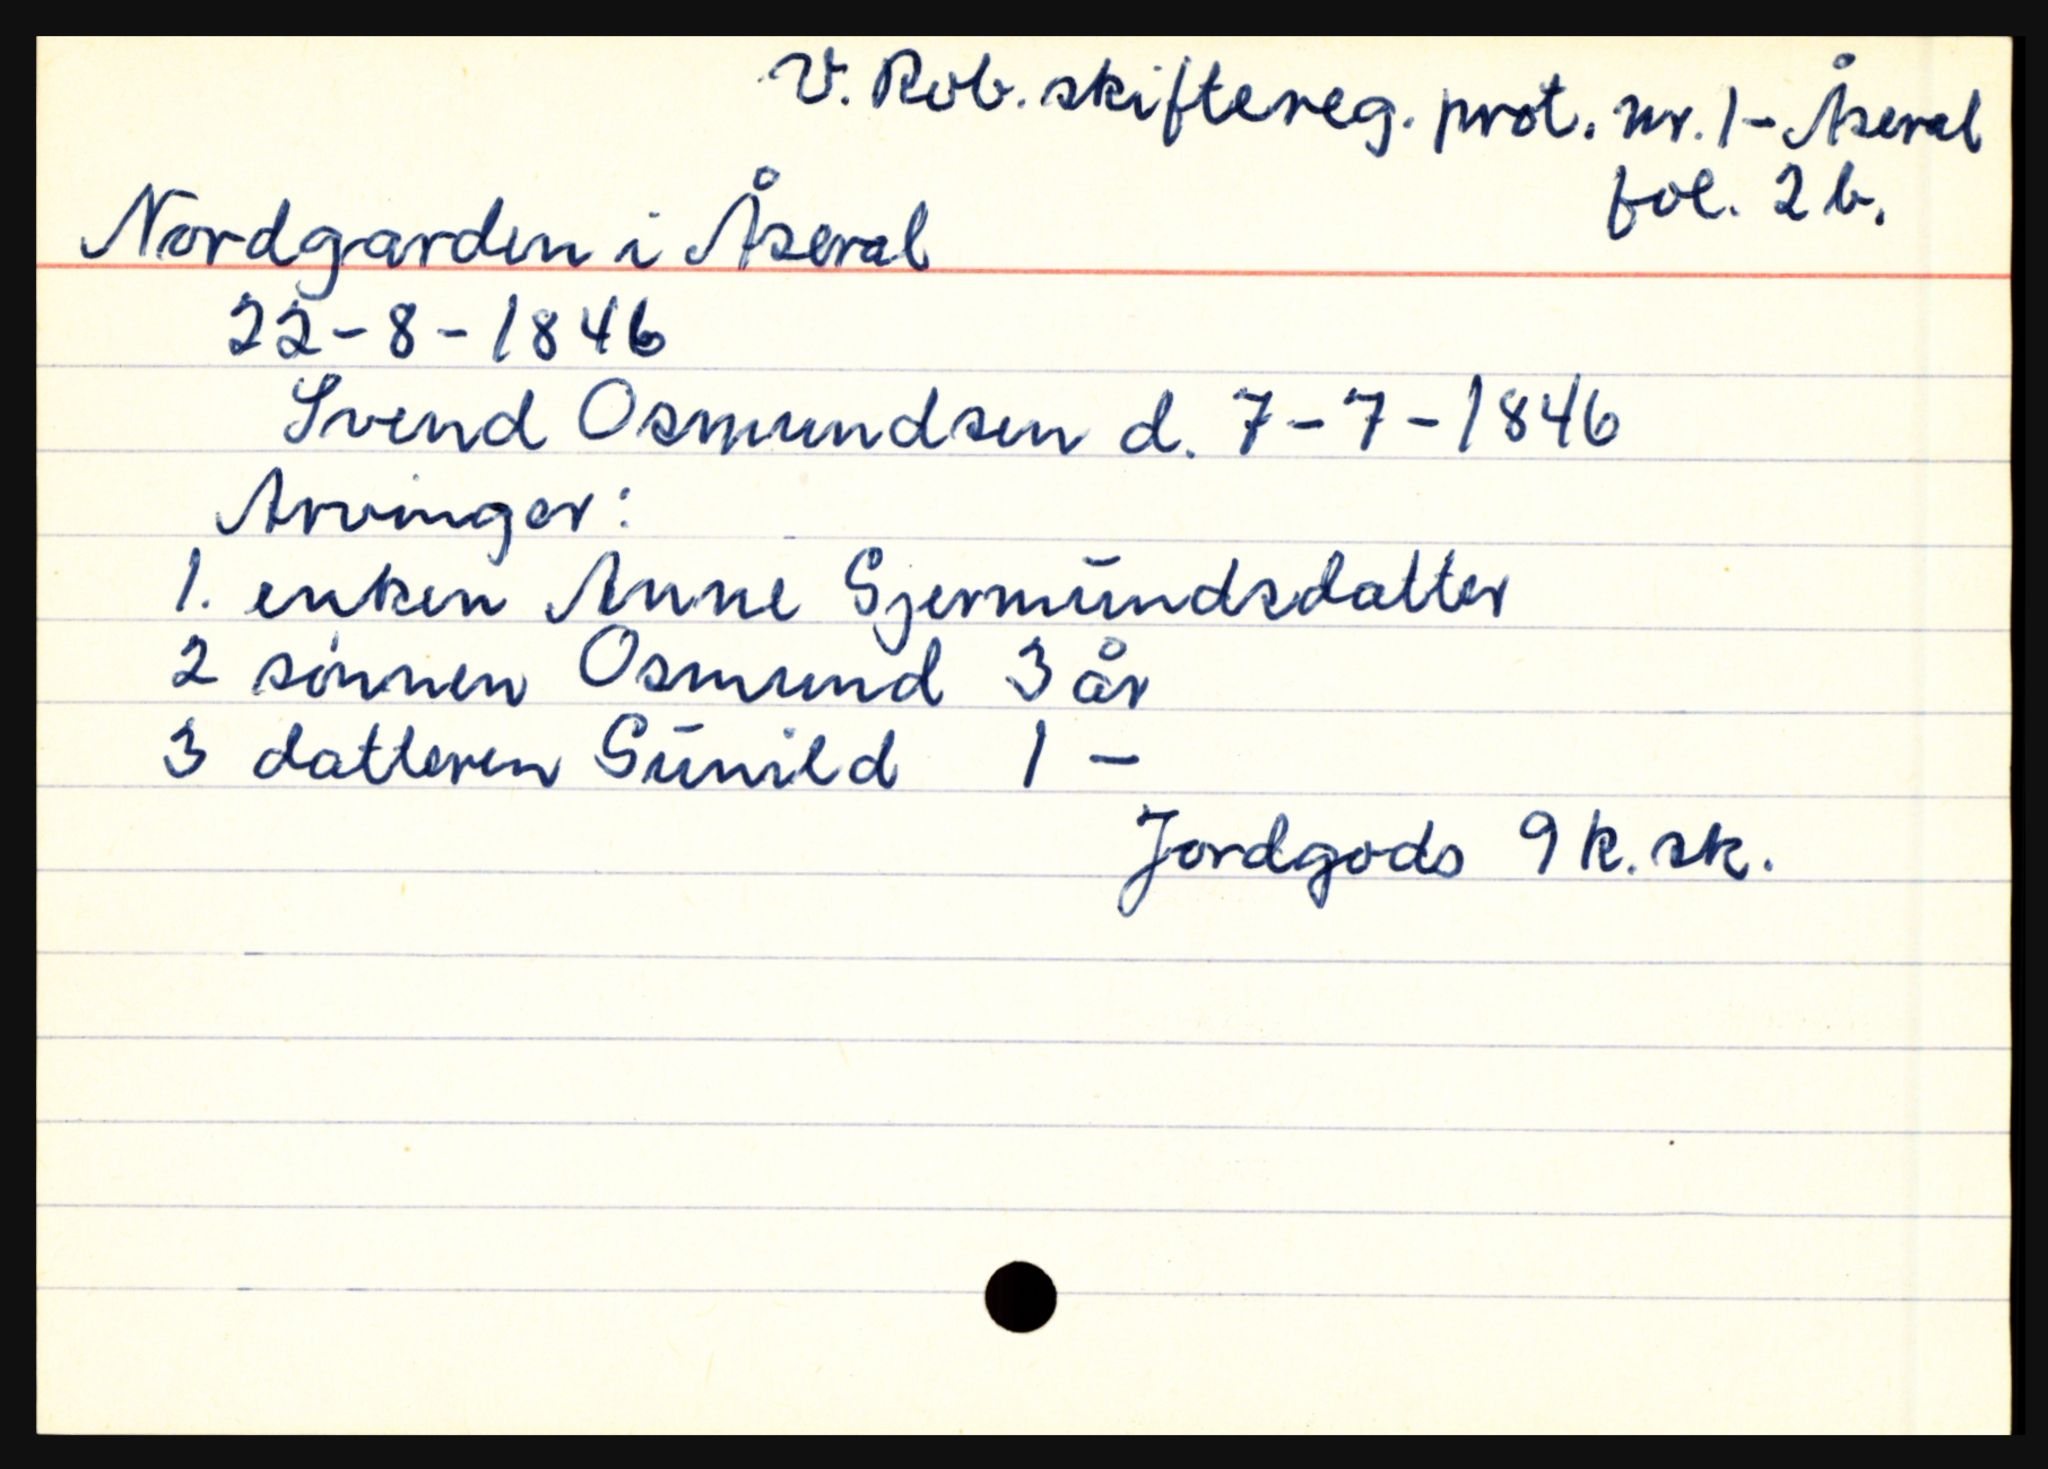 V. Rob. skiftereg. prot. nr. 1 - Åseral
fol. 2 b.
Nordgarden i Åseral
22 - 8 - 1846
Svend Osmundsen d. 7 - 7 - 1846
Arvinger:
1. enken Anne Gjermūndsdatter
2 sønnen Osmund 3 år
3 datteren Gūnild 1 -
Jordgods 9 k. sk.